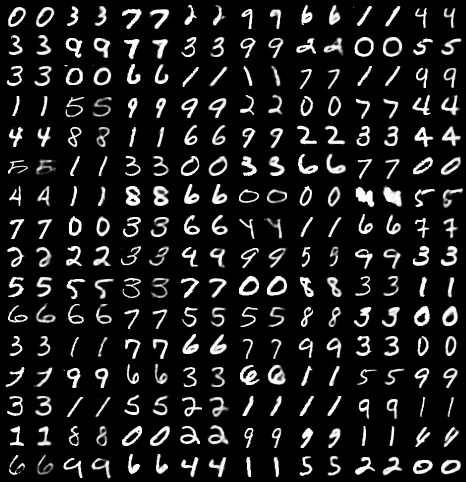 0 0 3 3 7 7 2 2 9 9 6 6 1 1 4 4
3 3 9 9 7 7 3 3 9 9 2 2 0 0 5 5
3 3 0 0 6 6 1 1 1 1 7 7 1 1 9 9
1 1 5 5 9 9 9 9 2 2 0 0 7 7 4 4
4 4 8 8 1 1 6 6 9 9 2 2 3 3 4 4
5 5 1 1 3 3 0 0 3 3 6 6 7 7 0 0
4 4 1 1 8 8 6 6 0 0 0 0 5 5
7 7 0 0 3 3 6 6 4 4 1 1 6 6 7 7
2 2 2 2 3 3 9 9 9 9 5 5 9 9 3 3
5 5 5 5 3 3 7 7 0 0 8 8 3 3 1 1
6 6 6 6 7 7 5 5 5 5 8 8 3 3 0 0
3 3 1 1 7 7 6 6 7 7 9 9 3 3 0 0
7 7 9 9 6 6 3 3 6 6 1 1 5 5 9 9
3 3 1 1 5 5 2 2 1 1 1 1 9 9 1 1
1 1 8 8 0 0 2 2 9 9 9 9 1 1 4 4
6 6 9 9 6 6 4 4 1 1 5 5 2 2 0 0